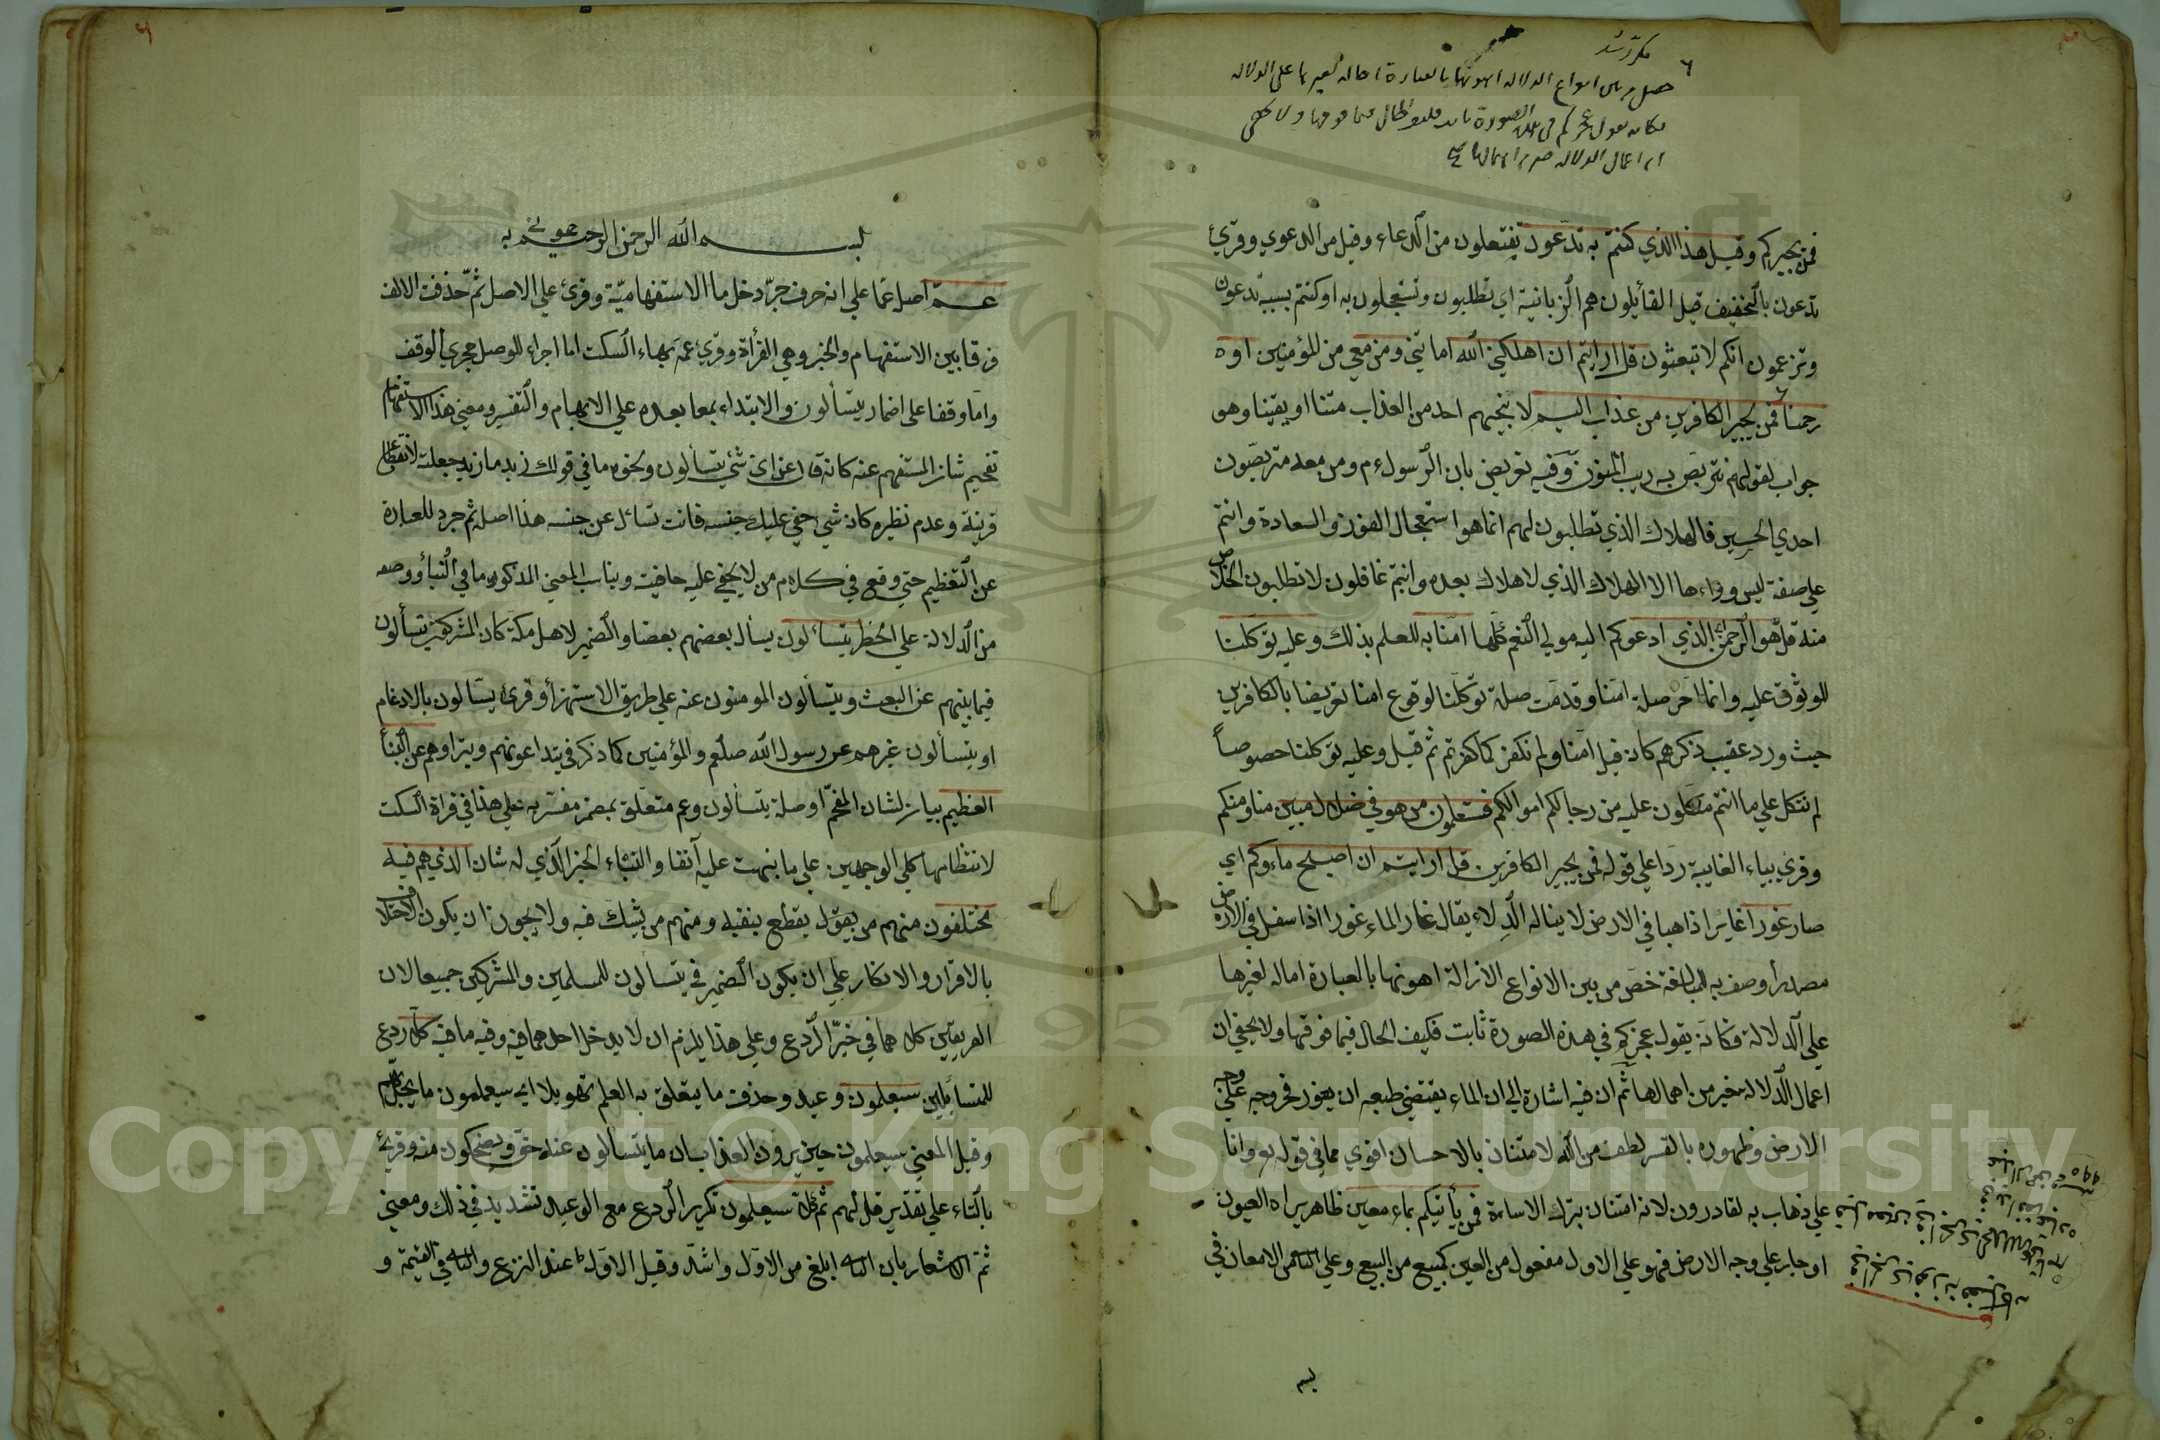 مكرر شد
حصل من بين انواع الدلالة اهونها بالعبارة احالة لغيرها على الدلالة
فكانه يقول عجزكم في هذه الصورة ثابت فكيف الحال فيما فوقها ولا يخفى
ان اعمال الدلالة خير من اهمالها
فمن يجيركم وقيل هذا الذي كنتم به تدّعون تفتعلون من الدعاء وقيل من الدعوي وقرئ
تدعون بالتخفيف قيل القائلون هم الزبانية اي تطلبون وتستعجلون به او كنتم بسببه تدعون
وتزعمون انكم لا تبعثون قل ارايتم ان اهلكني الله اماتني ومن معي من المؤمنين او
رحمنا فمن يجير الكافرين من عذاب اليم لا ينجيهم احد من العذاب متنا او بقينا وهو
جواب لقولهم نتربص به ريب المنون وفيه تعريض بان الرسول م ومن معه متربصون
احدي الحسنيين فالهلاك الذي تطلبون لهم انما هو استعجال الفوز والسعادة وانتم
علي صفة ليس وراءها الا الهلاك الذي لا هلاك بعده وانتم غافلون لا تطلبون الخلاص
منه قل هو الرحمن الذي ادعوكم اليه مولي النعم كلها امنا به للعلم بذلك وعليه توكلنا
للوثوق عليه وانما اخر صلة امنا وقدمت صلة توكلنا لوقوع امنا تعريضا بالكافرين
حيث ورد عقيب ذكرهم كان قيل امنا ولم نكفر كما كفرتم ثم قيل وعليه توكلنا خصوصاً
لم نتكل علي ما انتم متكلون عليه من رجالكم اموالكم فستعلمون من هو في ضلال مبين منا ومنكم
وقرئ بياء الغايبة ردا علي قوله فمن يجير الكافرين قل ارايتم ان اصبح ماءوكم اي
صار غورا غايرا ذاهبا في الارض لا يناله الدلاء يقال غار الماء غورا اذا سفل في الارض
مصدر أوصف به للمبالغة خص من بين الانواع الازالة اهونها بالعبارة امالة لغيرها
علي الدلالة فكانه يقول عجزكم في هذه الصورة ثابت فكيف الحال فيما فوقها ولا يخفي ان
اعمال الدلالة خير من اهمالها ثم ان فيه اشارة الي ان الماء يقتضي طبعه ان يغور فخروجه علي وجه
الارض وظهوره بالقسر لطف من الله لامتنان بالاحسان اقوي مما في قوله تع وانا
علي ذهاب به لقادرون لانه امتنان بترك الاساءة فمن يأتيكم بماء معين ظاهر يراه العيون
او جار علي وجه الارض فهو علي الاول مفعول من العين كبيع من البيع وعلي الثاني من الامعان في
بسم
بسم الله الرحمن الرحيم
عم اصله عما علي انه حرف جر دخل ما الاستفهامية وقرئ علي الاصل ثم حذفت الالف
فرقا بين الاستفهام والخبر وهي القرأة وقرئ عمه بهاء السكت اما اجراء للوصل مجري الوقف
واما وقفا على اضمار يتسألون والابتداء بما بعده علي الابهام والتفسير ومعني هذا الاستفهام
تفخيم شان المستفهم عنه كانه قال عن اي شئ يتسألون ونحوه ما في قولك زيد ما زيد جعلته لانقطاع
قرينه وعدم نظيره كان شئ خفي عليك جنسه فانت تسائل عن جنسه هذا اصله ثم جرد للعبارة
عن التعظيم حتي وقع في كلام من لا يخفي عليه خافية ويناسب المعني المذكور ما في النبأ ووصفه
من الدلالة علي الخطر يتسألون يسأل بعضهم بعضا والضمير لاهل مكة كان المشركين يتسألون
فيما بينهم عن البعث ويتسألون المومنون عنه علي طريق الاستهزأ وقرئ يسّالون بالادغام
او يتسألون غيرهم عن رسول الله صلعم والمؤمنين كما ذكر في يتداعونهم ويتراوهم عن النبأ
العظيم بيان لشان المفخّم او صلة يتسألون وعم متعلق بمضمر مفسر به علي هذا في قراة السكت
لانتظامها كلي الوجهين علي ما ينهت عليه آنفا والنبأ الخبر الذي له شان الذي هم فيه
مختلفون منهم من يقول يقطع بنفيه ومنهم من يشك فيه ولا يجوز ان يكون الاختلاف
بالاقرار والانكار علي ان يكون الضمير في يتسألون للمسلمين والمشركين جميعا لان
الفريقين كلاهما في خيّز الردع وعلي هذا يلزم ان لا يدخل احدهما فيه وفيه ما فيه كلا ردع
للمتسائلين سيعلمون وعيد وحذف ما يتعلق به العلم تهويلا اي سيعلمون ما يحل بهم
وقيل المعني سيعلمون حين يرون العذاب ان ما يتسألون عنه حق ويضحكون منه وقرئ
بالتاء علي تقدير قل لهم ثم كلا سيعلمون تكرير الردع مع الوعيد تشديد في ذلك ومعني
ثم الاشعار بان الثاني ابلغ من الاول واشد وقيل الاول عند النزع والثاني في القيمة و
Copyright © King Saud University
1957